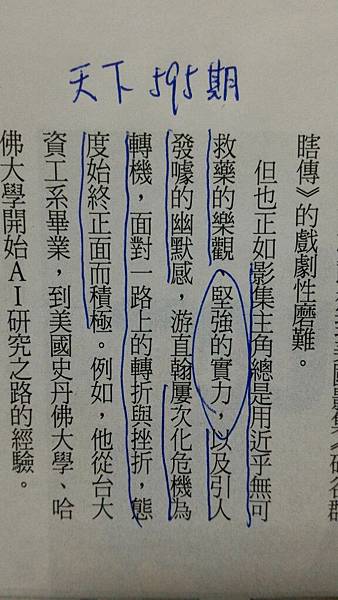 天下595期
瞎傳》的戲劇性磨難。
但也正如影集主角總是用近乎無可
救藥的樂觀、堅強的實力,以及引人
發噱的幽默感,游直翰屢次化危機為
轉機,面對一路上的轉折與挫折,態
度始終正面而積極。例如,他從台大
資工系畢業,到美國史丹佛大學、哈
佛大學開始AI研究之路的經驗。